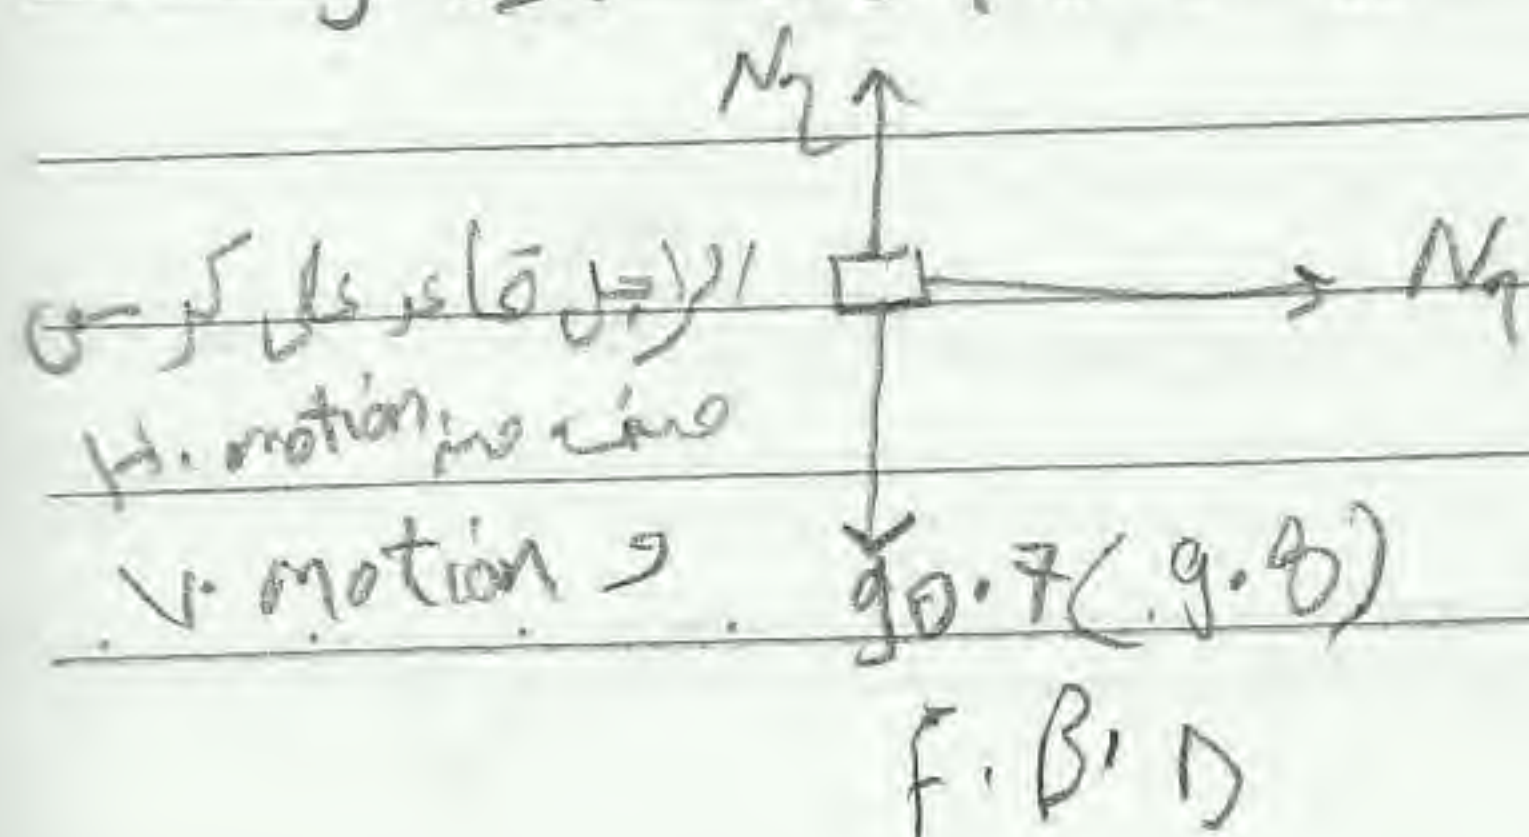 N₂
الراجل قاعد على كرسي N₂
H. motion منه
V. motion و 90.7(9.8)
F. B. D